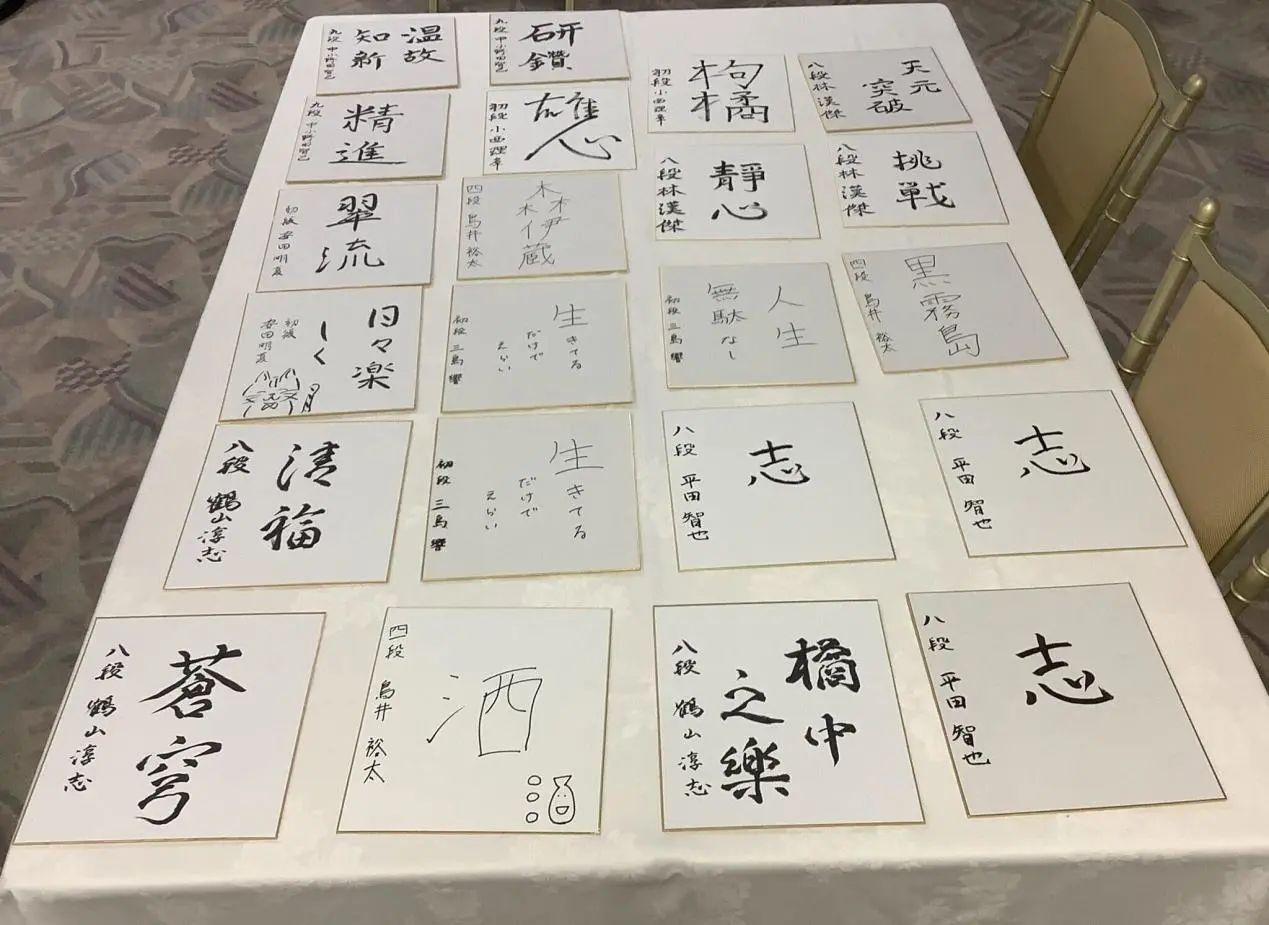 温故
知新
九段 中小野田智己
研鑽
九段 中小野田智己
枸橘
初段 小西理章
天元
突破
八段 林漢傑
精進
九段 中小野田智己
雄心
初段 小西理章
靜心
八段 林漢傑
挑戦
八段 林漢傑
翠流
初段 安田明夏
森伊蔵
四段 鳥井裕太
人生
無駄なし
初段 三島響
黒霧島
四段 鳥井裕太
日々楽
しく
初段
安田明夏
生きてる
だけで
えらい
初段 三島響
清福
八段 鶴山淳志
生きてる
だけで
えらい
初段 三島響
志
八段 平田智也
志
八段 平田智也
蒼穹
八段 鶴山淳志
酒
四段 鳥井裕太
橘中
之樂
八段 鶴山淳志
志
八段 平田智也